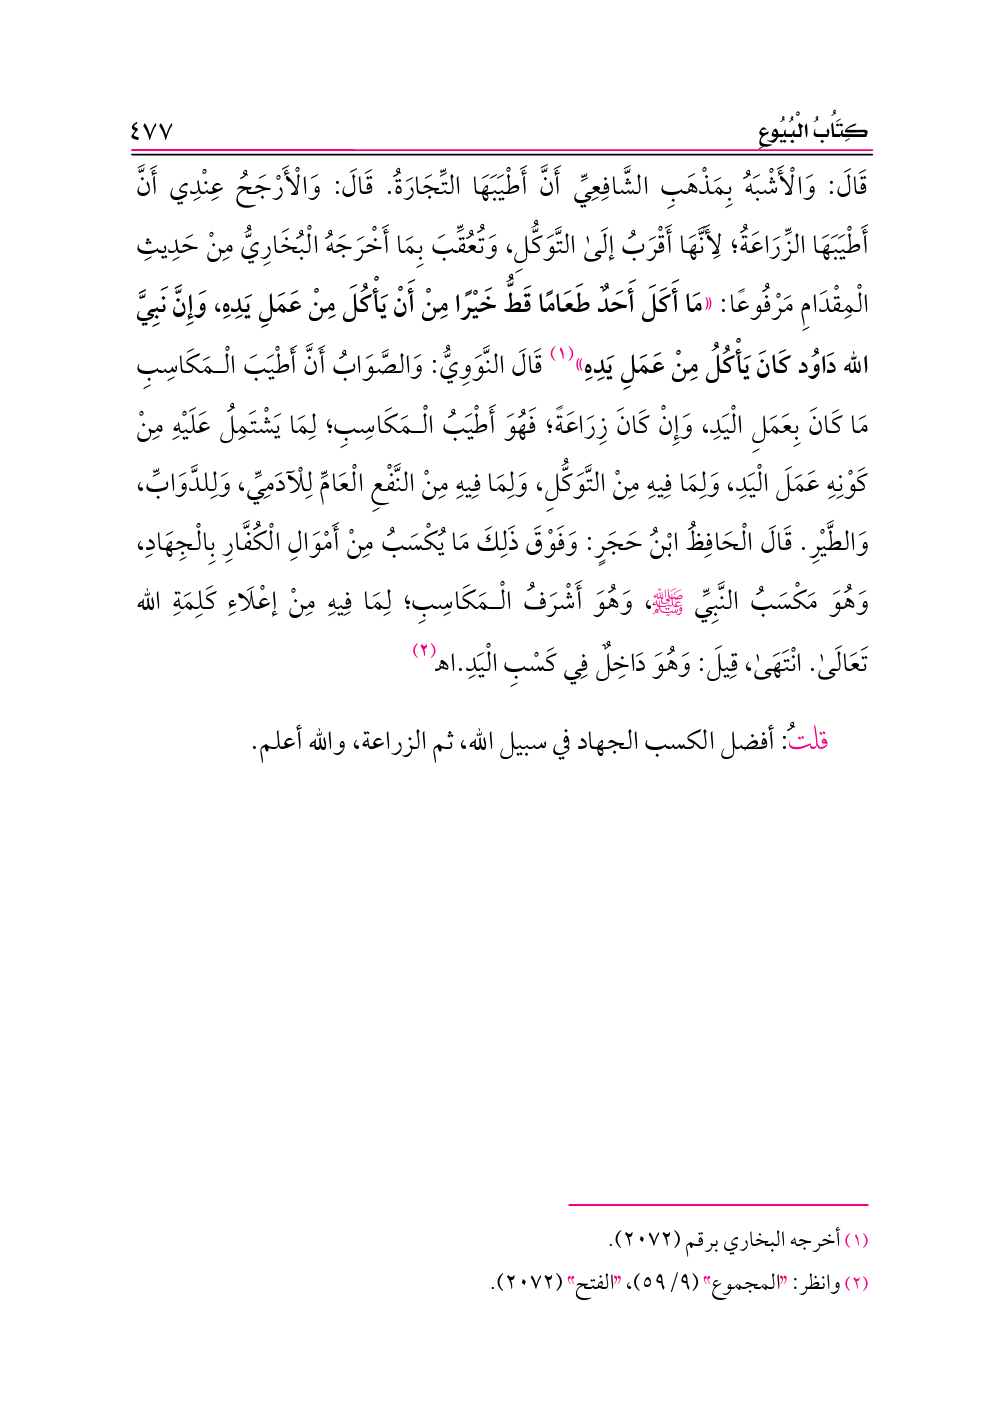 كِتَابُ الْبُيُوعِ ٤٧٧
قَالَ: وَالْأَشْبَهُ بِمَذْهَبِ الشَّافِعِيِّ أَنَّ أَطْيَبَهَا التِّجَارَةُ. قَالَ: وَالْأَرْجَحُ عِنْدِي أَنَّ
أَطْيَبَهَا الزِّرَاعَةُ؛ لِأَنَّهَا أَقْرَبُ إلَىٰ التَّوَكُّلِ، وَتُعُقِّبَ بِمَا أَخْرَجَهُ الْبُخَارِيُّ مِنْ حَدِيثِ
الْمِقْدَامِ مَرْفُوعًا: «مَا أَكَلَ أَحَدٌ طَعَامًا قَطُّ خَيْرًا مِنْ أَنْ يَأْكُلَ مِنْ عَمَلِ يَدِهِ، وَإِنَّ نَبِيَّ
الله دَاوُد كَانَ يَأْكُلُ مِنْ عَمَلِ يَدِهِ»(١) قَالَ النَّوَوِيُّ: وَالصَّوَابُ أَنَّ أَطْيَبَ الْـمَكَاسِبِ
مَا كَانَ بِعَمَلِ الْيَدِ، وَإِنْ كَانَ زِرَاعَةً؛ فَهُوَ أَطْيَبُ الْـمَكَاسِبِ؛ لِمَا يَشْتَمِلُ عَلَيْهِ مِنْ
كَوْنِهِ عَمَلَ الْيَدِ، وَلِمَا فِيهِ مِنْ التَّوَكُّلِ، وَلِمَا فِيهِ مِنْ النَّفْعِ الْعَامِّ لِلْآدَمِيِّ، وَلِلدَّوَابِّ،
وَالطَّيْرِ. قَالَ الْحَافِظُ ابْنُ حَجَرٍ: وَفَوْقَ ذَلِكَ مَا يُكْسَبُ مِنْ أَمْوَالِ الْكُفَّارِ بِالْجِهَادِ،
وَهُوَ مَكْسَبُ النَّبِيِّ ﷺ، وَهُوَ أَشْرَفُ الْـمَكَاسِبِ؛ لِمَا فِيهِ مِنْ إعْلَاءِ كَلِمَةِ الله
تَعَالَىٰ. انْتَهَىٰ، قِيلَ: وَهُوَ دَاخِلٌ فِي كَسْبِ الْيَدِ.اهـ(٢)
قلتُ: أفضل الكسب الجهاد في سبيل الله، ثم الزراعة، والله أعلم.
(١) أخرجه البخاري برقم (٢٠٧٢).
(٢) وانظر: "المجموع" (٩/ ٥٩)، "الفتح" (٢٠٧٢).